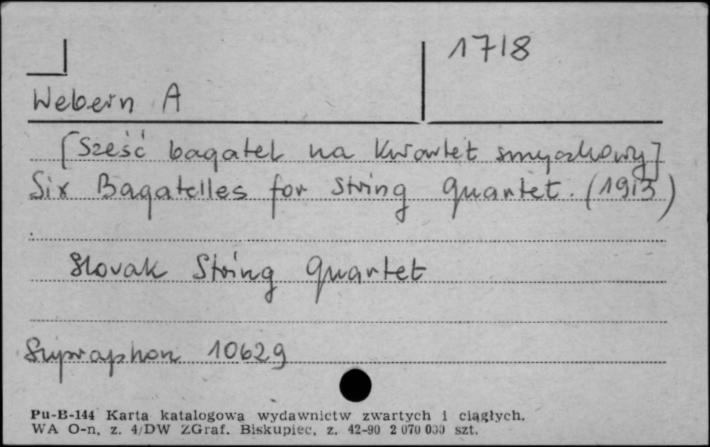 1718
Webern A
[Sześć bagatel na kwartet smyczkowy]
Six Bagatelles for string quartet. (1913)
Slovak String Quartet
Supraphon 10629
Pu-B-144 Karta katalogowa wydawnictw zwartych i ciągłych.
WA O-n, z. 4/DW ZGraf. Biskupiec, z. 42-90 2 070 000 szt.